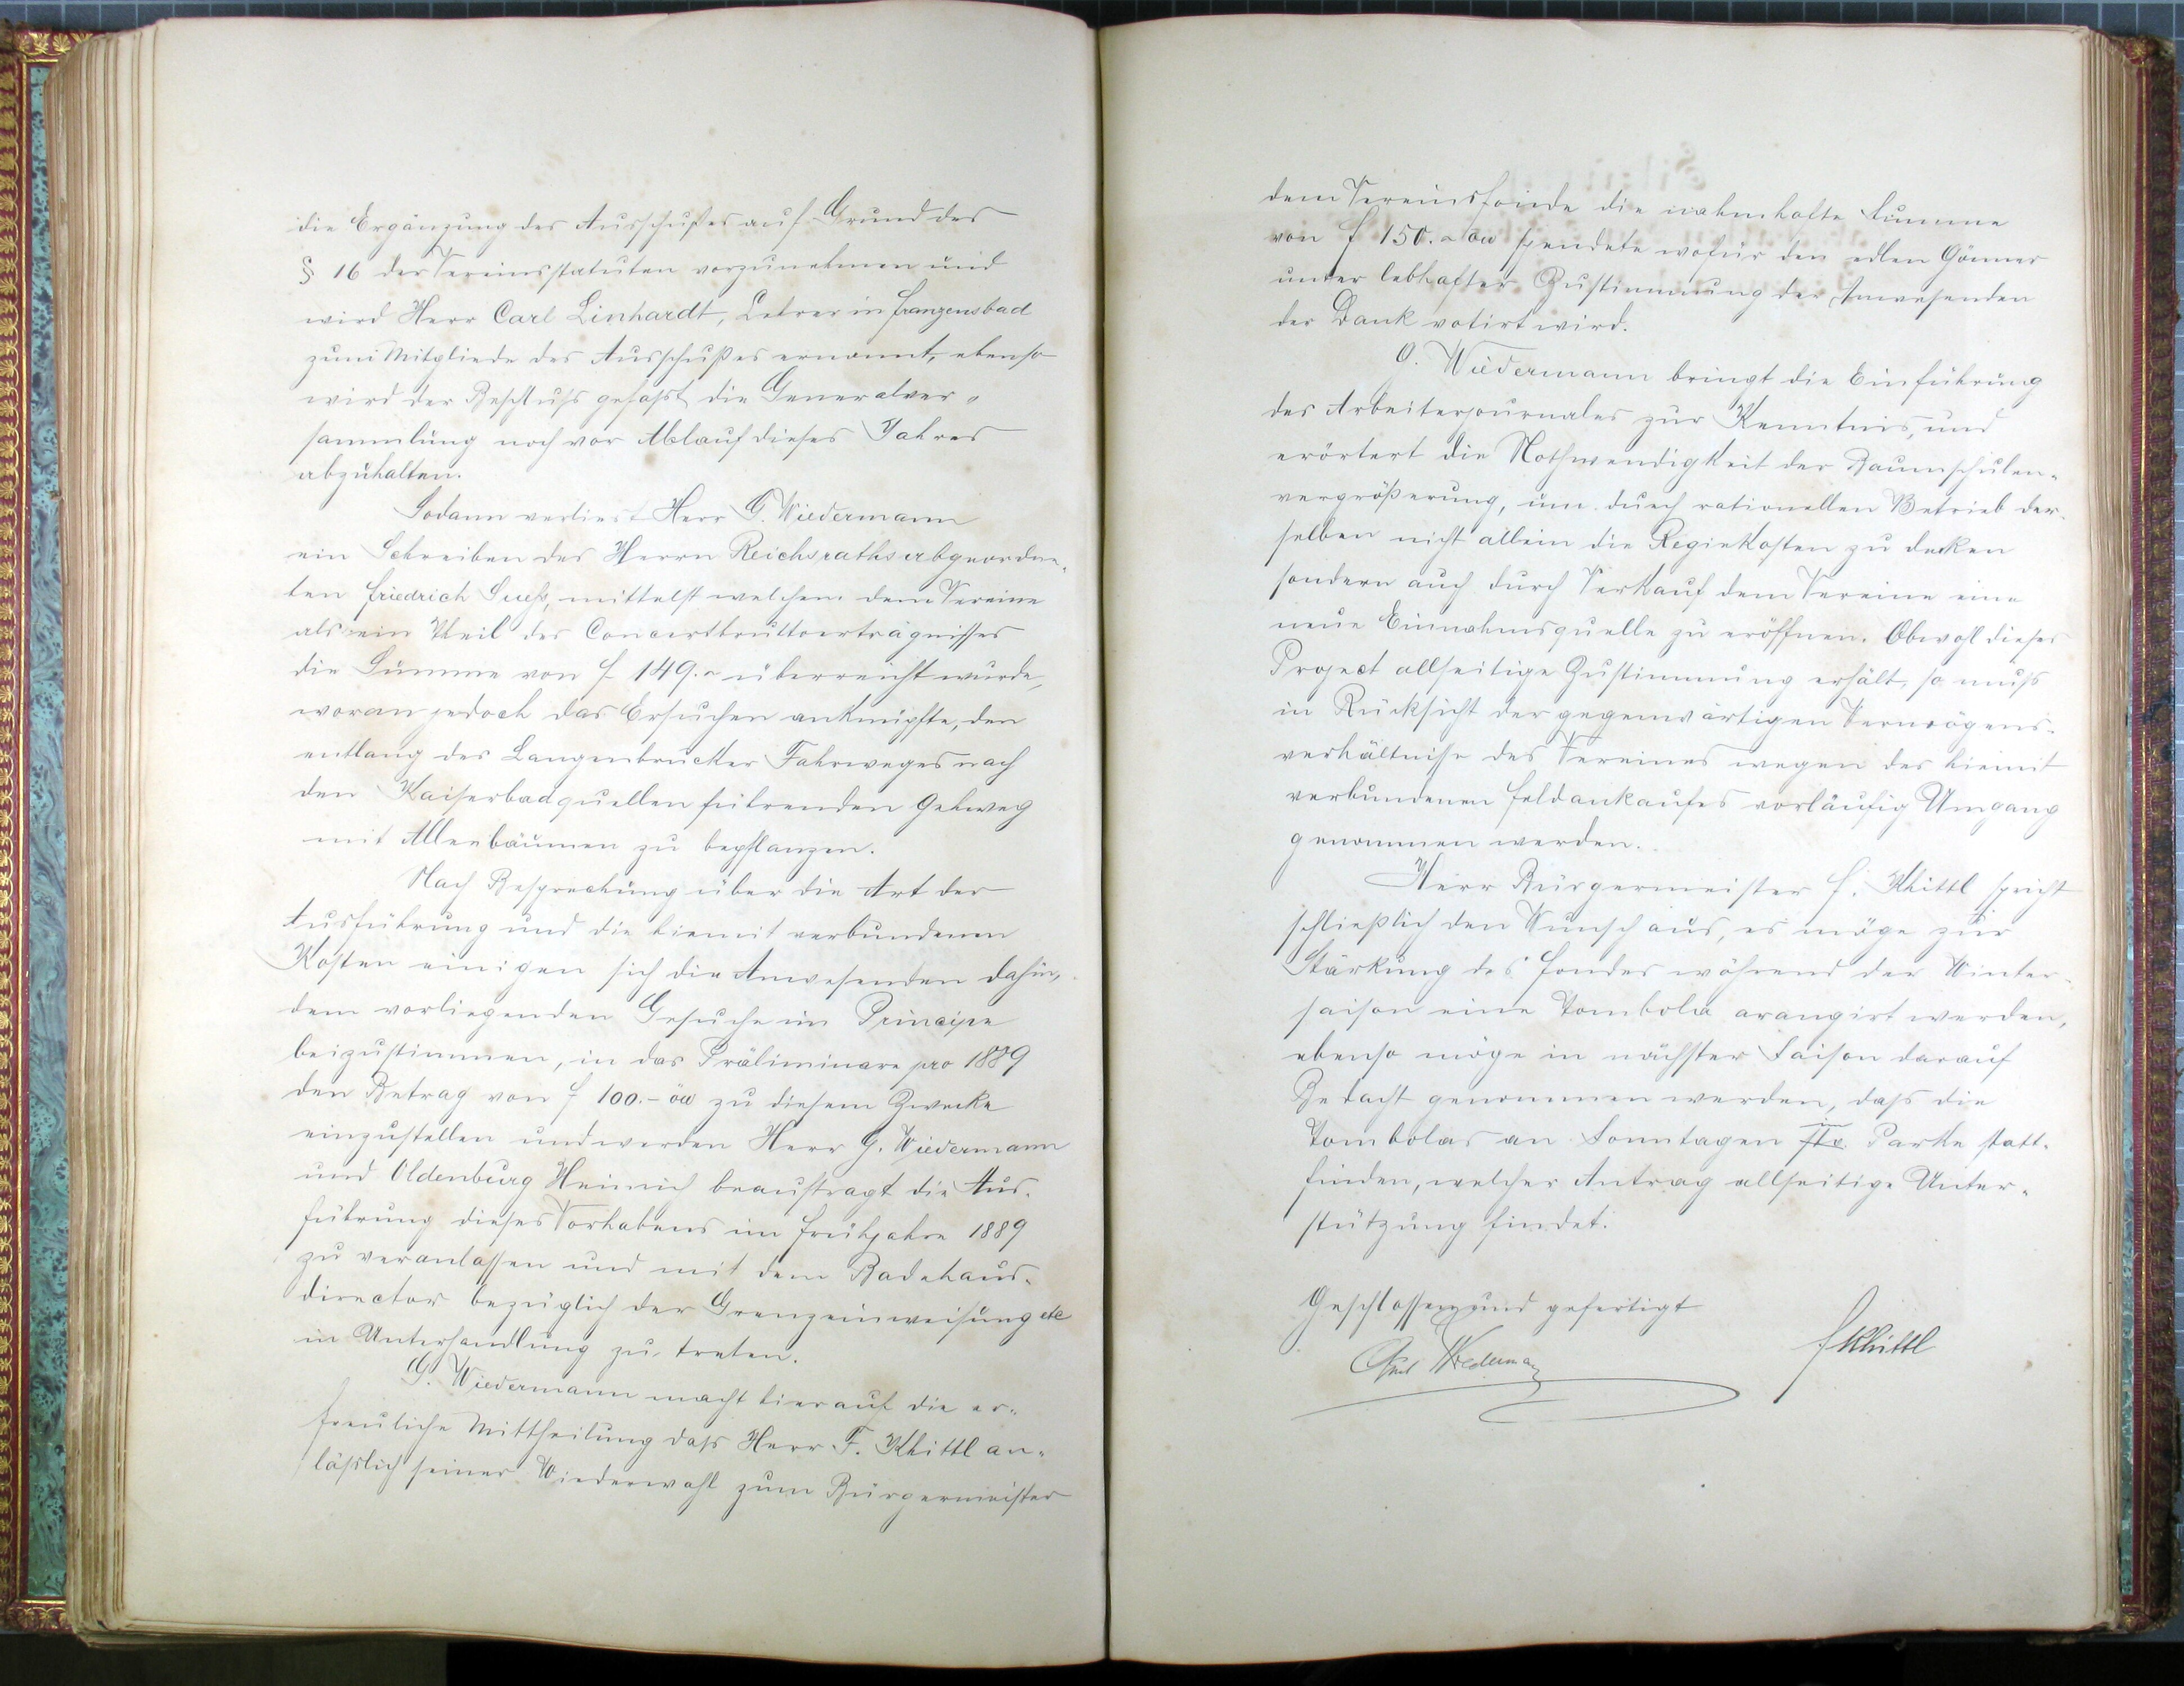 die Ergänzung des Ausschußes auf Grund des
§ 16 der Vereinsstatuten vorzunehmen und
wird Herr Carl Linhardt, Lehrer in Franzensbad
zum Mitgliede des Ausschußes ernannt, ebenso
wird der Beschluß gefaßt, die Generalver-
sammlung noch vor Ablauf dieses Jahres
abzuhalten.
Sodann verliest Herr G. Wiedermann
ein Schreiben des Herrn Reichsrathsabgeordne-
ten Friedrich Sueß, mittelst welchem dem Vereine
als ein Theil des Concertbruttoerträgnisses
die Summe von f 149.- überreicht wurde,
woran jedoch das Ersuchen anknüpfte, den
entlang des Langenbrucker Fahrweges nach
den Kaiserbadquellen führenden Gehweg
mit Alleebäumen zu bepflanzen.
Nach Besprechung über die Art der
Ausführung und die hiemit verbundenen
Kosten einigen sich die Anwesenden dahin,
dem vorliegenden Gesuche im Principe
beizustimmen, in das Präliminare pro 1889
den Betrag von f 100.- öw zu diesem Zwecke
einzustellen und werden Herr G. Wiedermann
und Oldenburg Heinrich beauftragt die Aus-
führung dieses Vorhabens im Frühjahre 1889
zu veranlassen und mit dem Badehaus-
director bezüglich der Grenzeinweisung etc
in Unterhandlung zu treten.
G. Wiedermann macht hierauf die er-
freuliche Mittheilung daß Herr F. Khittl an-
läßlich seiner Wiederwahl zum Bürgermeister
dem Vereinsfonde die nahmhafte Summe
von f 150.- öw spendete wofür den edlen Gönner
unter lebhafter Zustimmung der Anwesenden
der Dank votirt wird.
G. Wiedermann bringt die Einführung
des Arbeiterjournales zur Kenntnis, und
erörtert die Nothwendigkeit der Baumschulen-
vergrößerung, um durch rationellen Betrieb der-
selben nicht allein die Regiekosten zu decken
sondern auch durch Verkauf dem Vereine eine
neue Einnahmsquelle zu eröffnen. Obwohl dieses
Project allseitige Zustimmung erhält, so muß
in Rücksicht der gegenwärtigen Vermögens-
verhältnisse des Vereines wegen des hiemit
verbundenen Feldankaufes vorläufig Umgang
genommen werden.
Herr Bürgermeister F. Khittl spricht
schließlich den Wunsch aus, es möge zur
Stärkung des Fondes während der Winter-
saison eine Tombola arangirt werden,
ebenso möge in nächster Saison darauf
Bedacht genommen werden, daß die
Tombolas an Sonntagen im Parke statt-
finden, welcher Antrag allseitige Unter-
stützung findet.
Geschlossen und gefertigt
Wiedermann
FKhittl